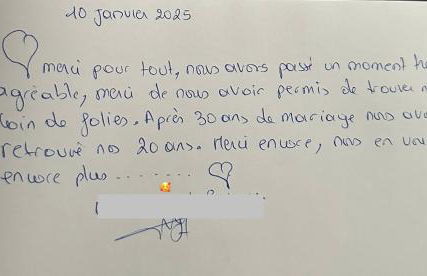 10 Janvier 2025
merci pour tout, nous avons passé un moment
agréable, merci de nous avoir permis de trouver
coin de folies. Après 30 ans de mariage nous
retrouvé nos 20 ans. Merci encore, nous en
encore plus .......